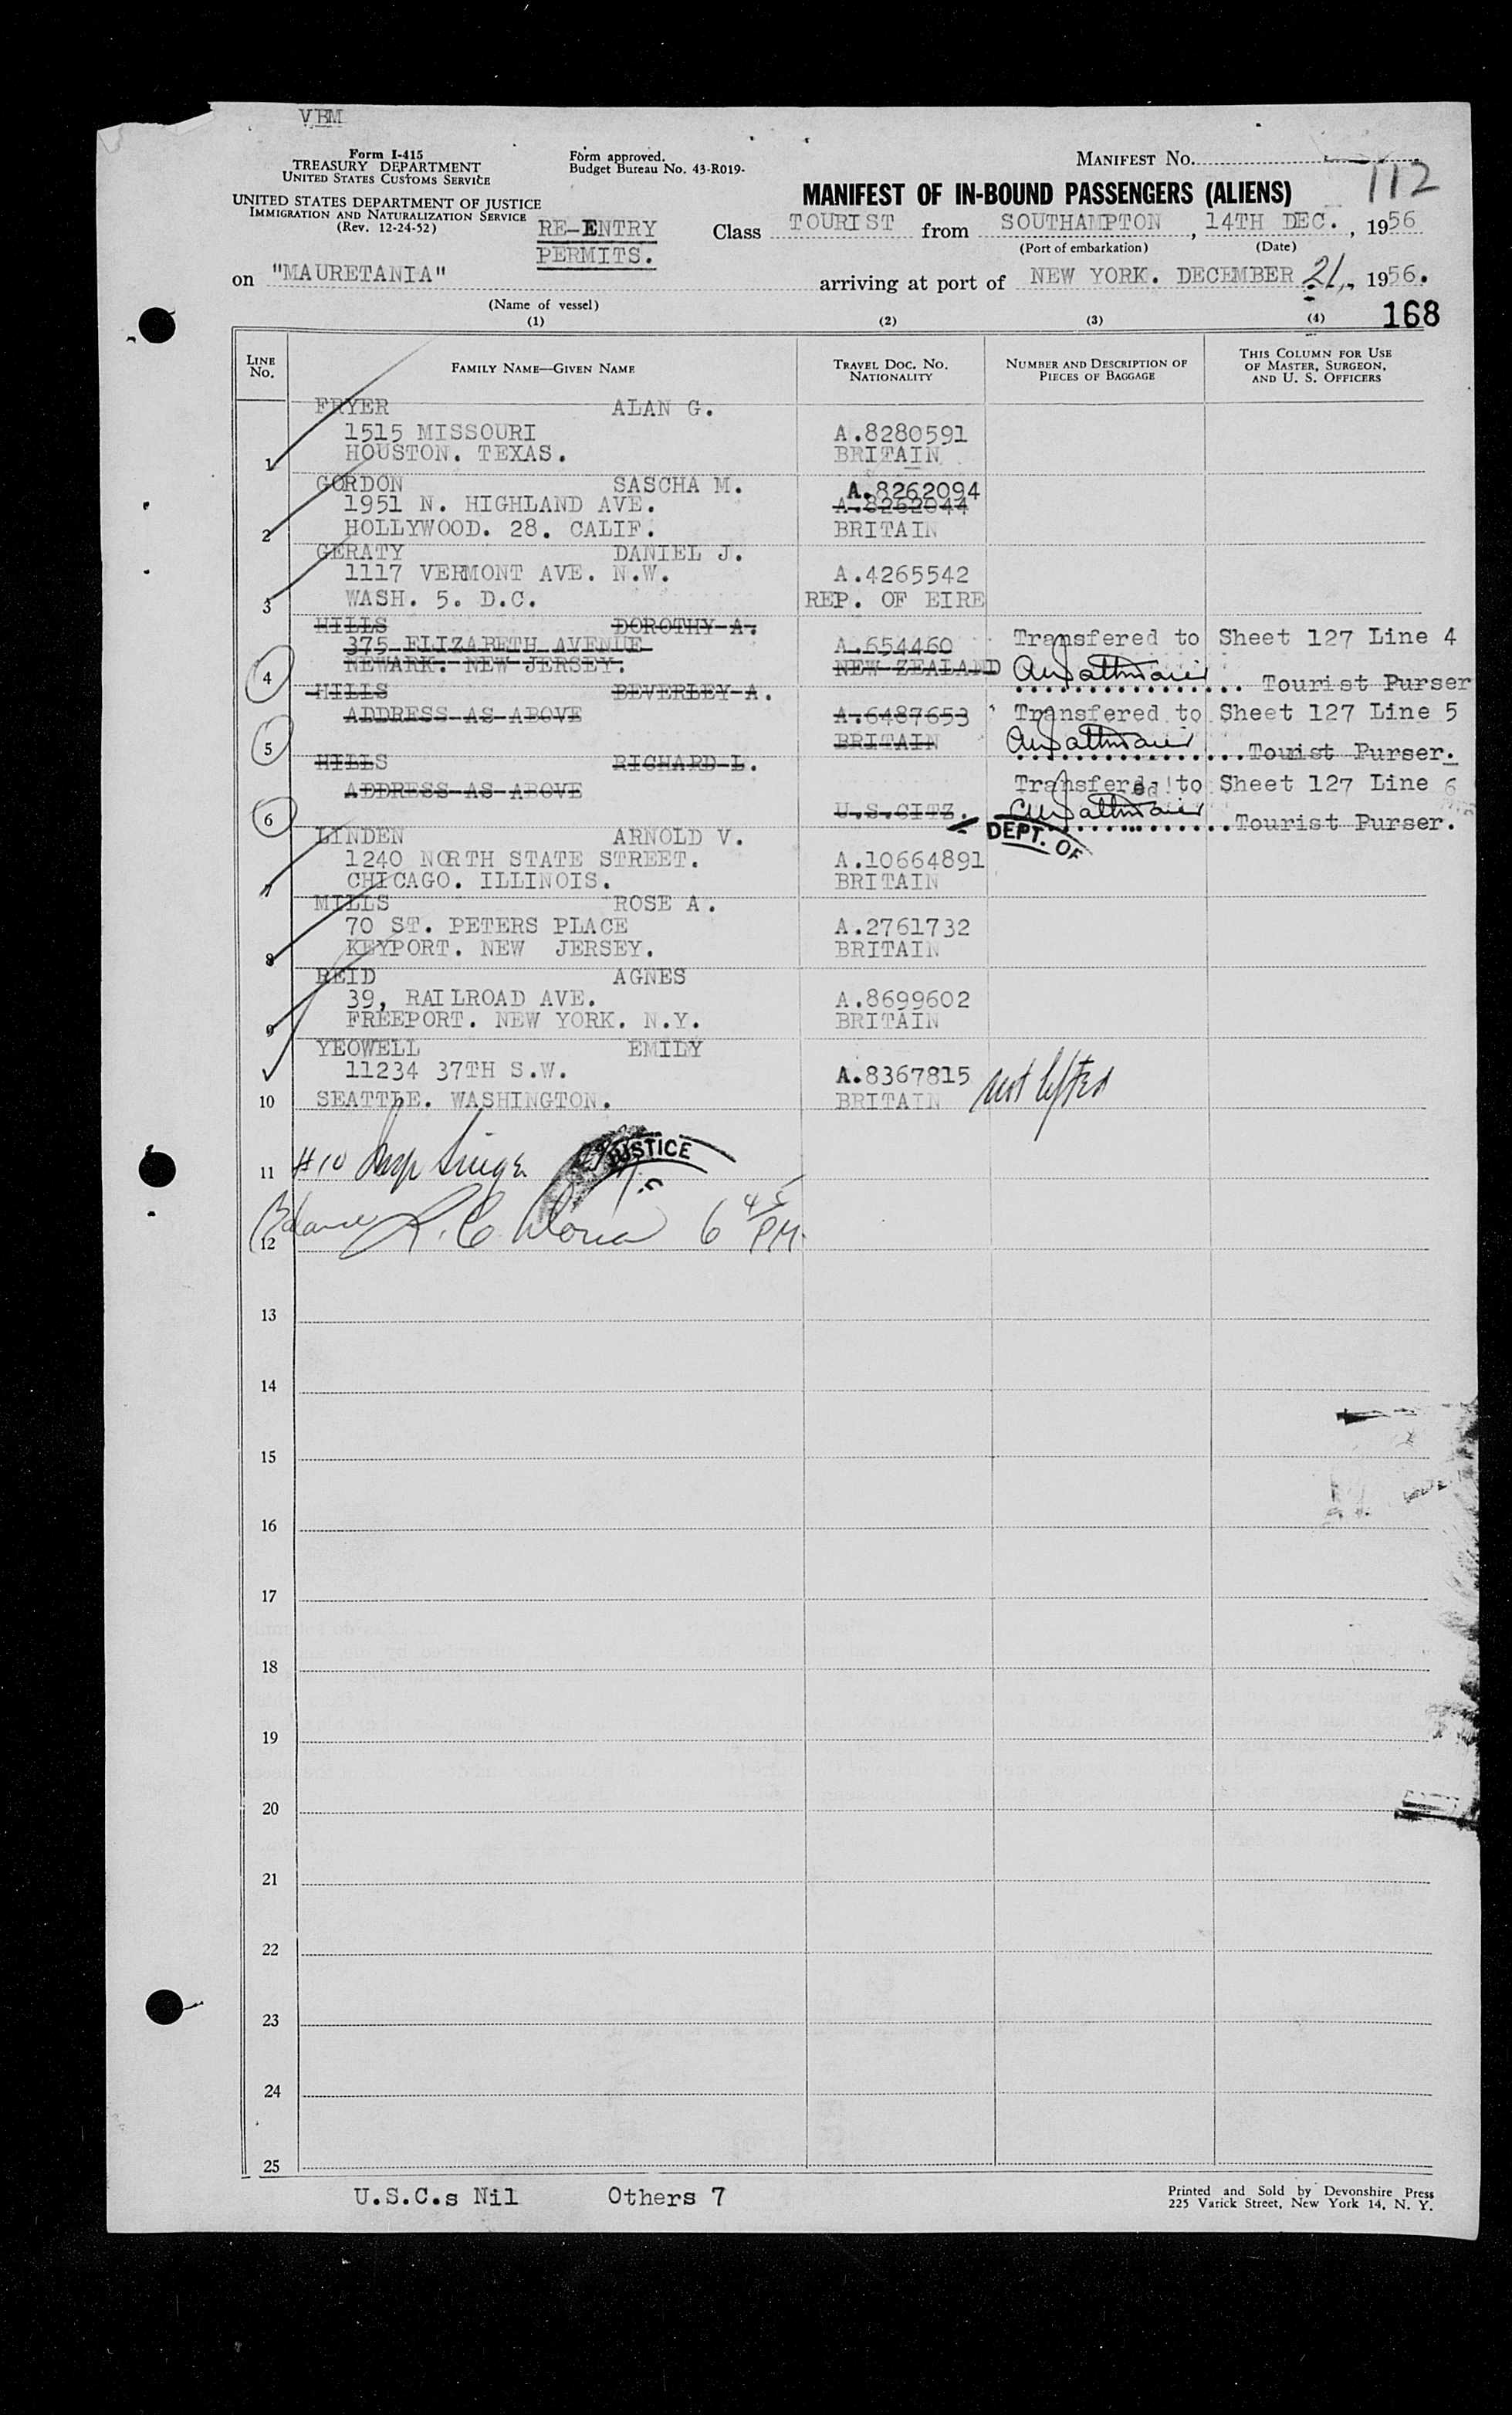 VBM
Form I-415
TREASURY DEPARTMENT
UNITED STATES CUSTOMS SERVICE
UNITED STATES DEPARTMENT OF JUSTICE
IMMIGRATION AND NATURALIZATION SERVICE
(Rev. 12-24-52)
Form approved.
Budget Bureau No. 43-R019-
RE-ENTRY
PERMITS.
MANIFEST No.
112
MANIFEST OF IN-BOUND PASSENGERS (ALIENS)
Class TOURIST from SOUTHAMPTON, 14TH DEC., 1956
(Port of embarkation) (Date)
on "MAURETANIA" arriving at port of NEW YORK. DECEMBER 21, 1956.
(Name of vessel)
168
(1) (2) (3) (4)
LINE No. FAMILY NAME—GIVEN NAME TRAVEL DOC. NO. NATIONALITY NUMBER AND DESCRIPTION OF PIECES OF BAGGAGE THIS COLUMN FOR USE OF MASTER, SURGEON, AND U. S. OFFICERS
FRYER ALAN G.
1515 MISSOURI A.8280591
1 HOUSTON. TEXAS. BRITAIN
GORDON SASCHA M. A.8262094
1951 N. HIGHLAND AVE. A.8262044
2 HOLLYWOOD. 28. CALIF. BRITAIN
GERATY DANIEL J.
1117 VERMONT AVE. N.W. A.4265542
3 WASH. 5. D.C. REP. OF EIRE
HILLS DOROTHY A.
375 ELIZABETH AVENUE A.654460 Transfered to Sheet 127 Line 4
4 NEWARK. NEW JERSEY. NEW ZEALAND Tourist Purser
HILLS BEVERLEY A.
ADDRESS AS ABOVE A.6487653 Transfered to Sheet 127 Line 5
5 BRITAIN Tourist Purser.
HILLS RICHARD L.
ADDRESS AS ABOVE Transfered to Sheet 127 Line 6
6 U.S.CITZ. Tourist Purser.
DEPT. OF
LINDEN ARNOLD V.
1240 NORTH STATE STREET. A.10664891
7 CHICAGO. ILLINOIS. BRITAIN
MILLS ROSE A.
70 ST. PETERS PLACE A.2761732
8 KEYPORT. NEW JERSEY. BRITAIN
REID AGNES
39, RAILROAD AVE. A.8699602
9 FREEPORT. NEW YORK. N.Y. BRITAIN
YEOWELL EMILY
11234 37TH S.W. A.8367815 not lifted
10 SEATTLE. WASHINGTON. BRITAIN
11 #10 Insp
JUSTICE
12 Balance 6 45 PM.
13
14
15
16
17
18
19
20
21
22
23
24
25
U.S.C.s Nil Others 7
Printed and Sold by Devonshire Press
225 Varick Street, New York 14, N. Y.